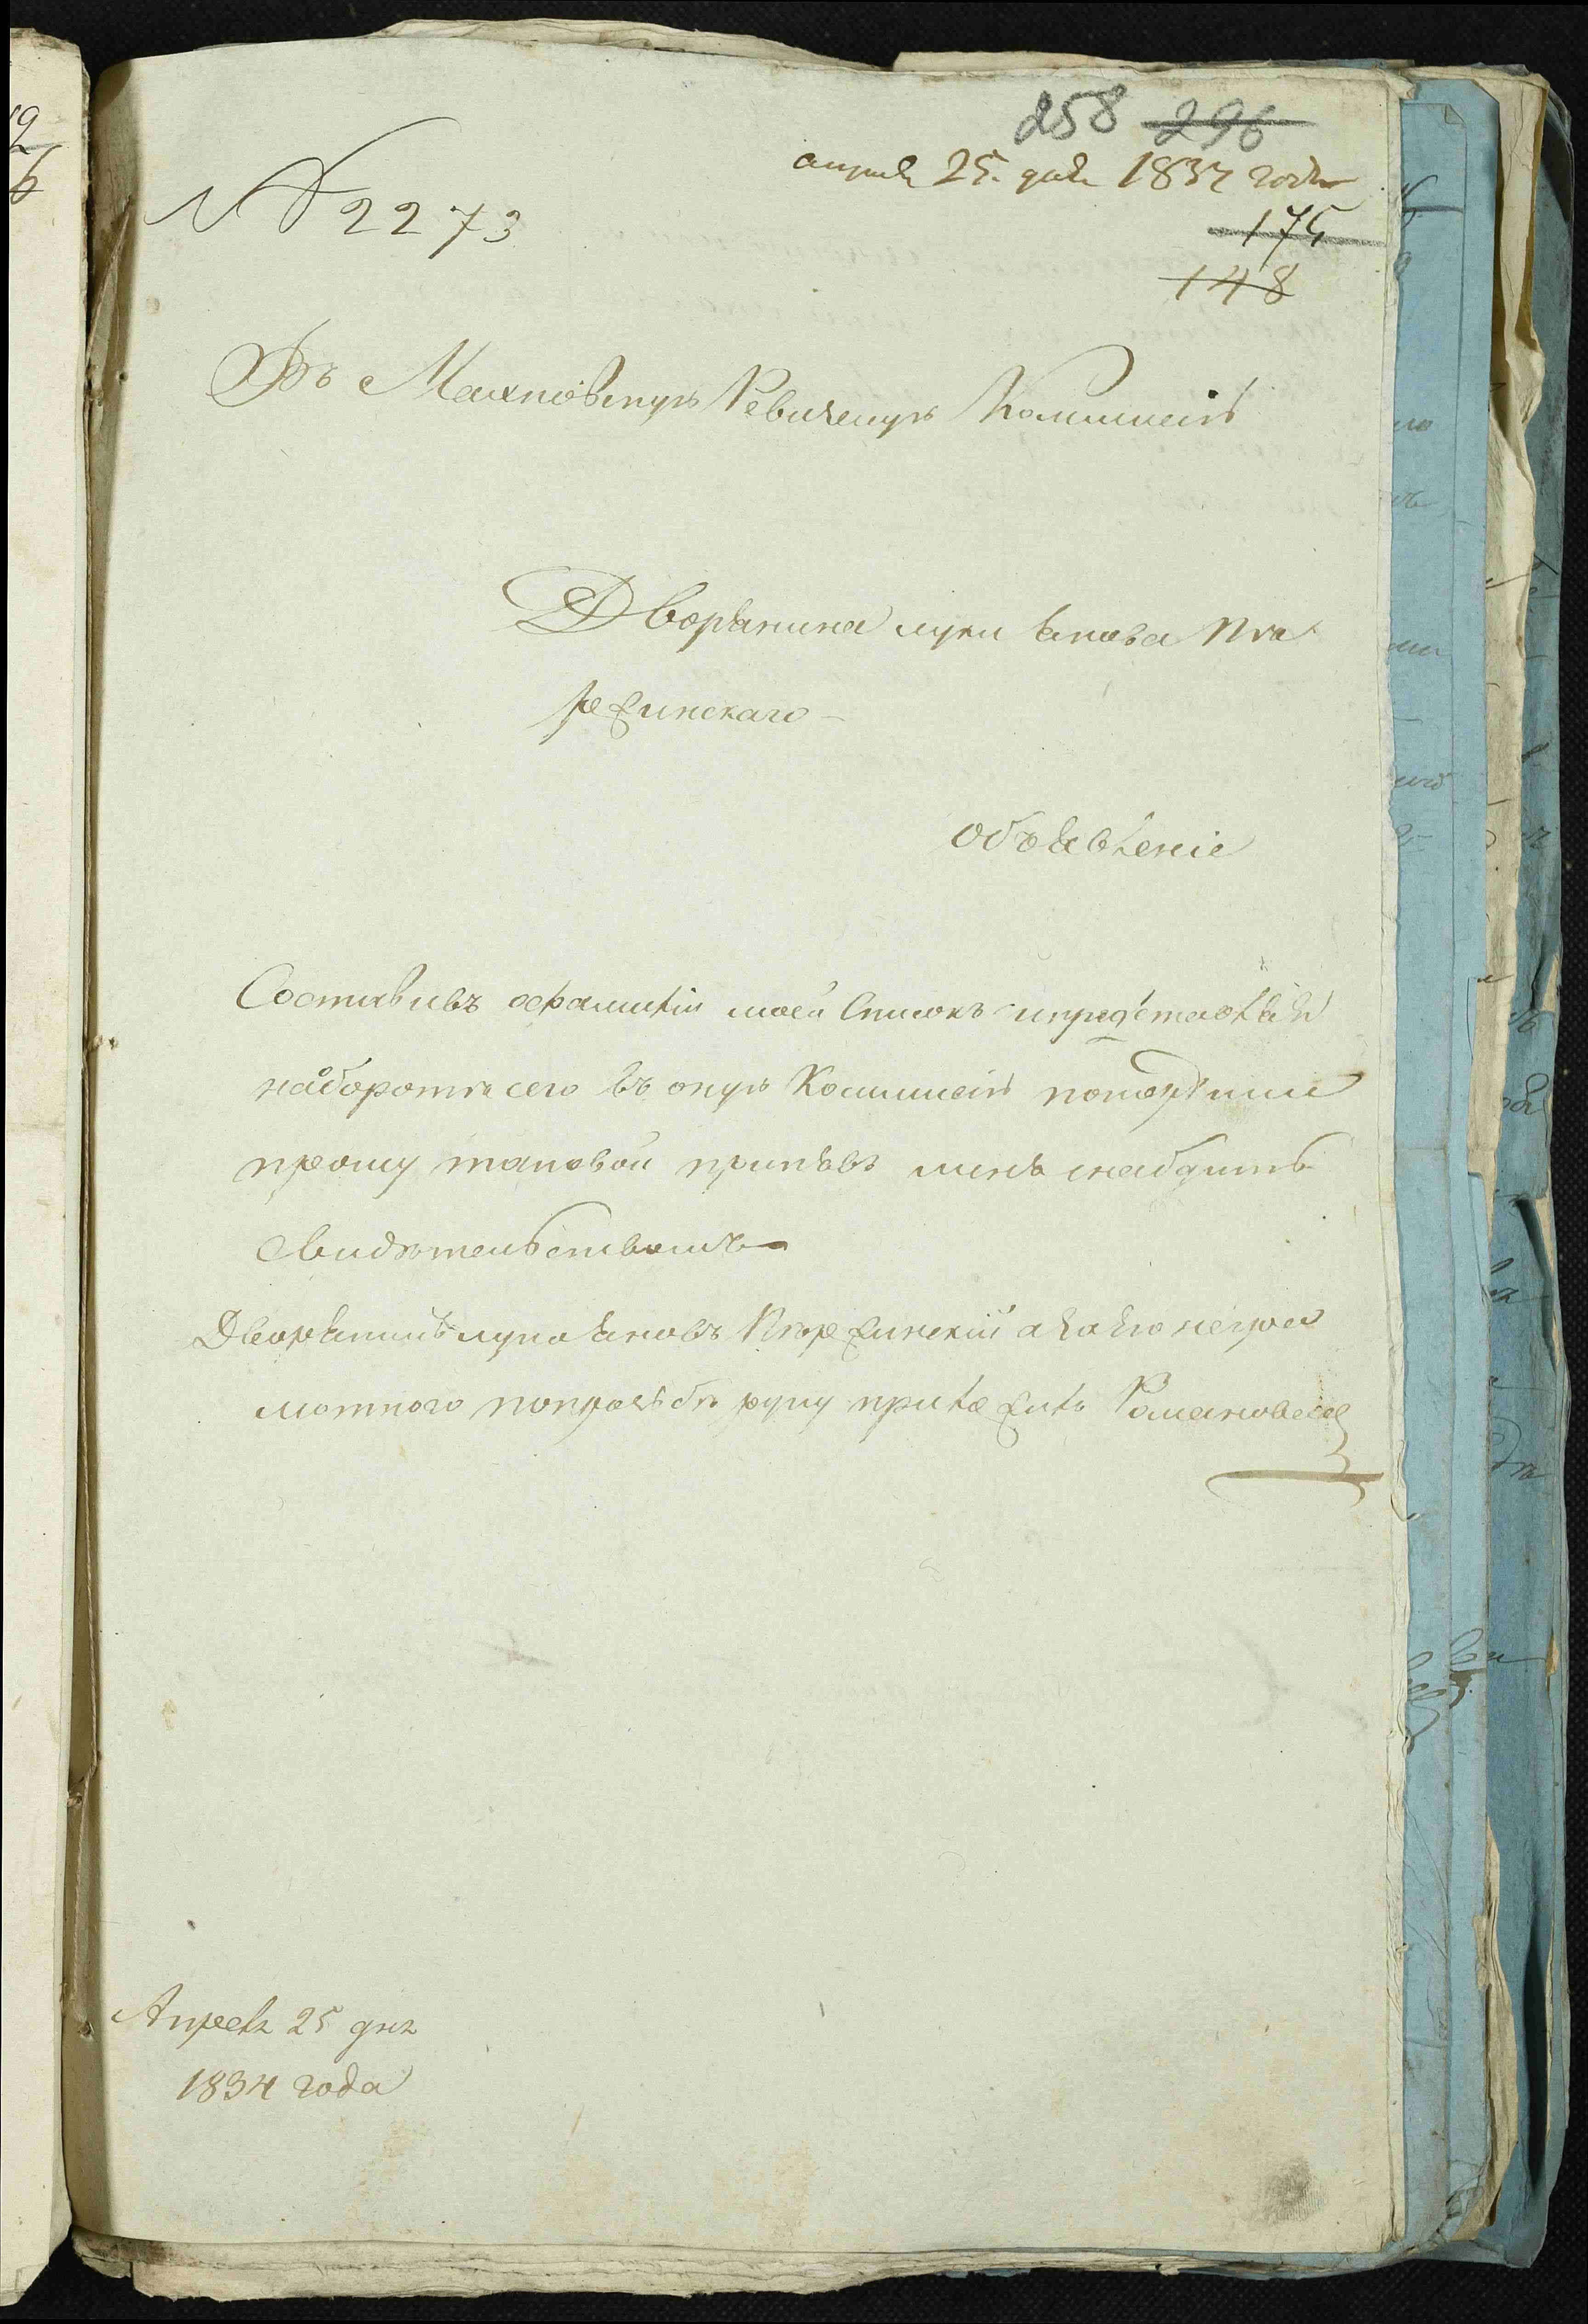 258 296
апреля 25. дня 1834 года
№ 2273
175
148
Въ Махновскую Ревизскую Коммисію
Дворянина луки янова
режинскаго
объявленіе
Составивъ офамиліи моей Списокъ ипредставляя
наоборотѣ сего въ оную Коммисію
прошу таковой принявъ меня снабдить
Свидѣтельствомъ
Дворянинъ лука яновъ а за его неграмотного
попрозьбѣ руку приложилъ
Апреля 25 дня
1834 года